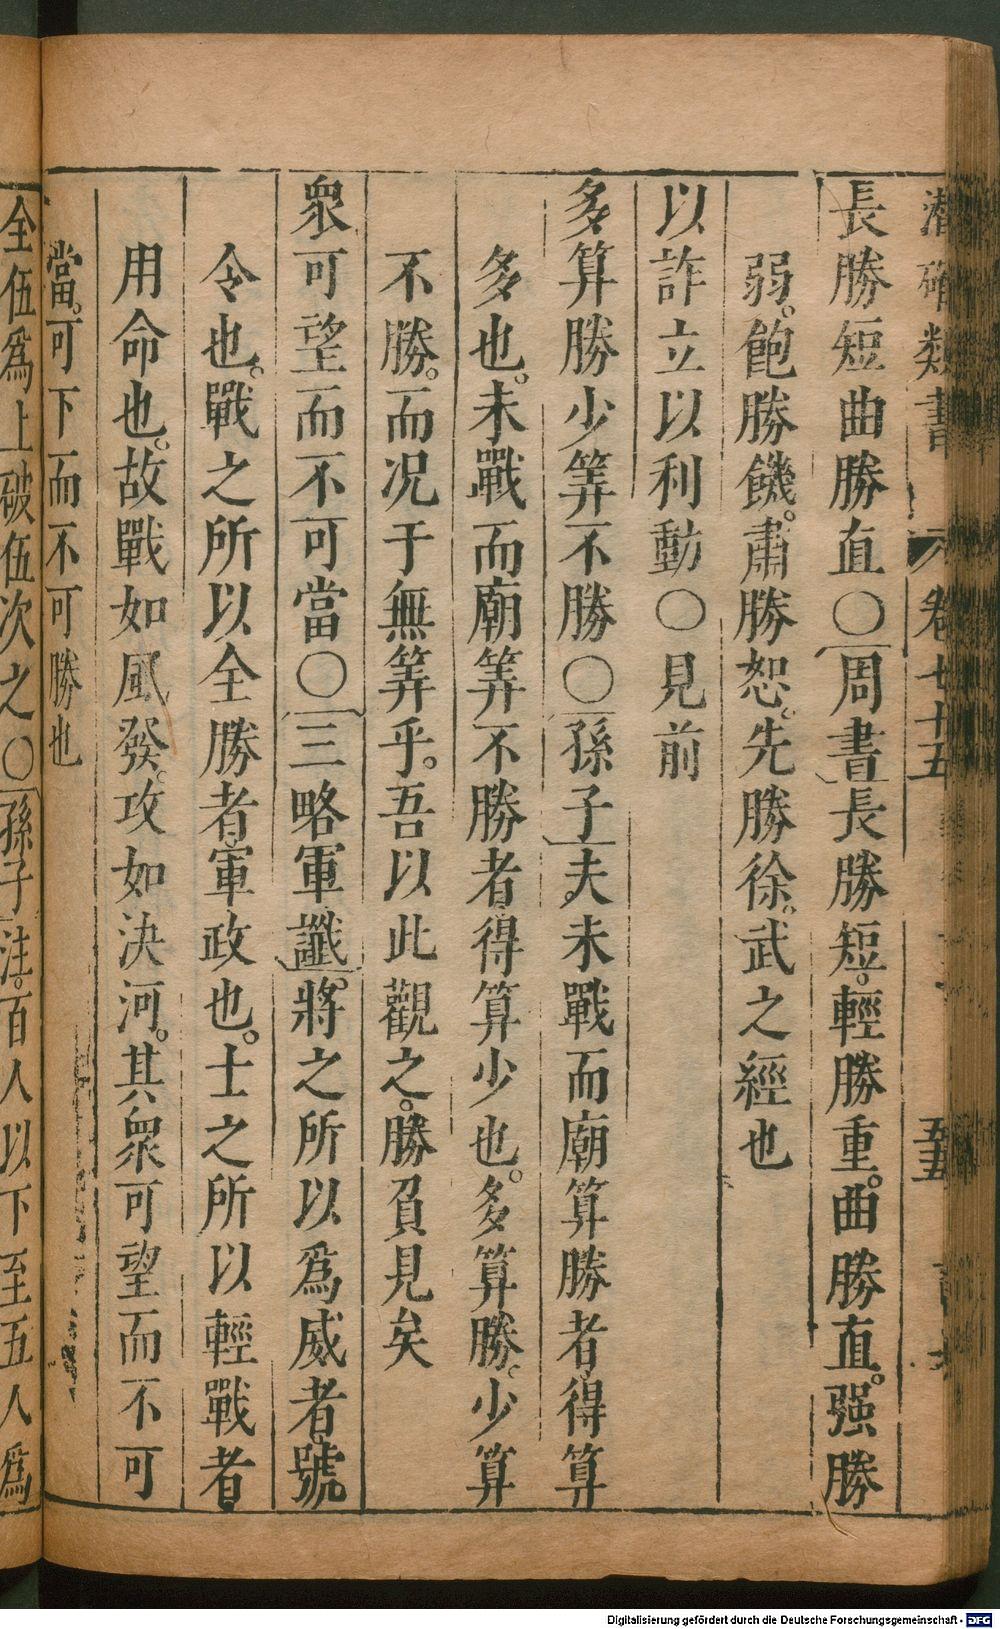 潛確類書 卷七十五 五五
長勝短曲勝直〇周書長勝短。輕勝重。曲勝直。强勝
弱。飽勝饑。肅勝怒。先勝徐。武之經也
以詐立以利動〇見前
多算勝少筭不勝〇孫子夫未戰而廟算勝者得算
多也。未戰而廟筭不勝者得算少也。多算勝。少算
不勝。而况于無筭乎。吾以此觀之。勝負見矣
衆可望而不可當〇三略軍讖。將之所以爲威者號
令也。戰之所以全勝者軍政也。士之所以輕戰者
用命也。故戰如風發。攻如決河。其衆可望而不可
當。可下而不可勝也
全伍爲上破伍次之〇孫子注。百人以下至五人爲
Digitalisierung gefördert durch die Deutsche Forschungsgemeinschaft - DFG